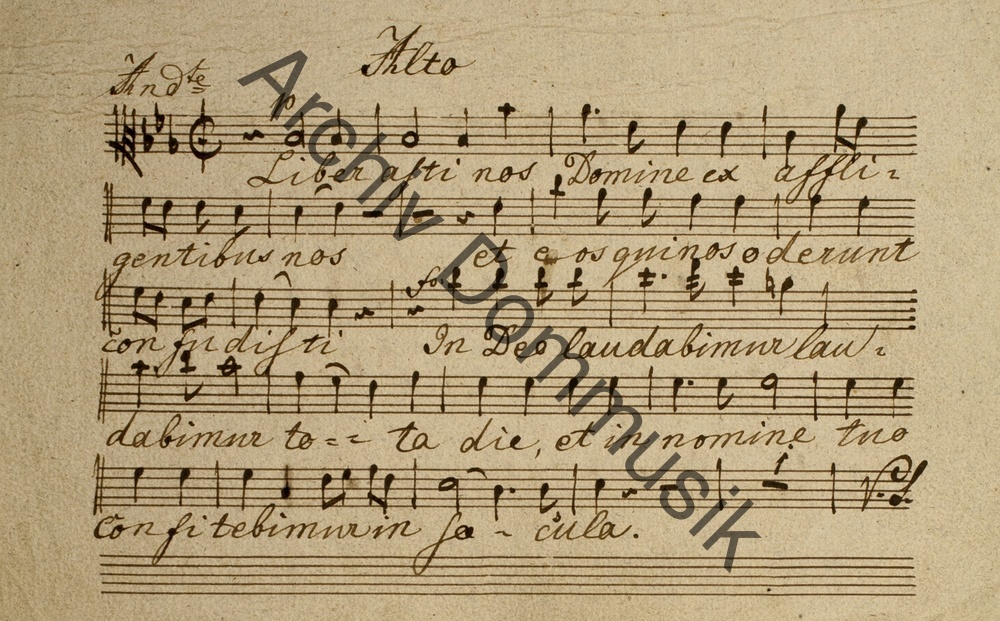 Alto
Andte
p
Liberasti nos Domine ex affli=
gentibus nos et eos qui nos oderunt
fo
confudisti In Deo laudabimur lau=
dabimur to=ta die, et in nomine tuo
1
confitebimur in secula.
V.S.
Archiv Dommusik